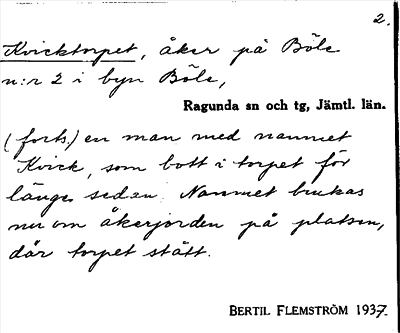 2.
Kvicktorpet, åker på Böle
n:r 2 i byn Böle,
Ragunda sn och tg, Jämtl. län.
(forts.) en man med namnet
Kvick, som bott i torpet för
länge sedan. Namnet brukas
nu om åkerjorden på platsen,
där torpet stått.
BERTIL FLEMSTRÖM 1937.